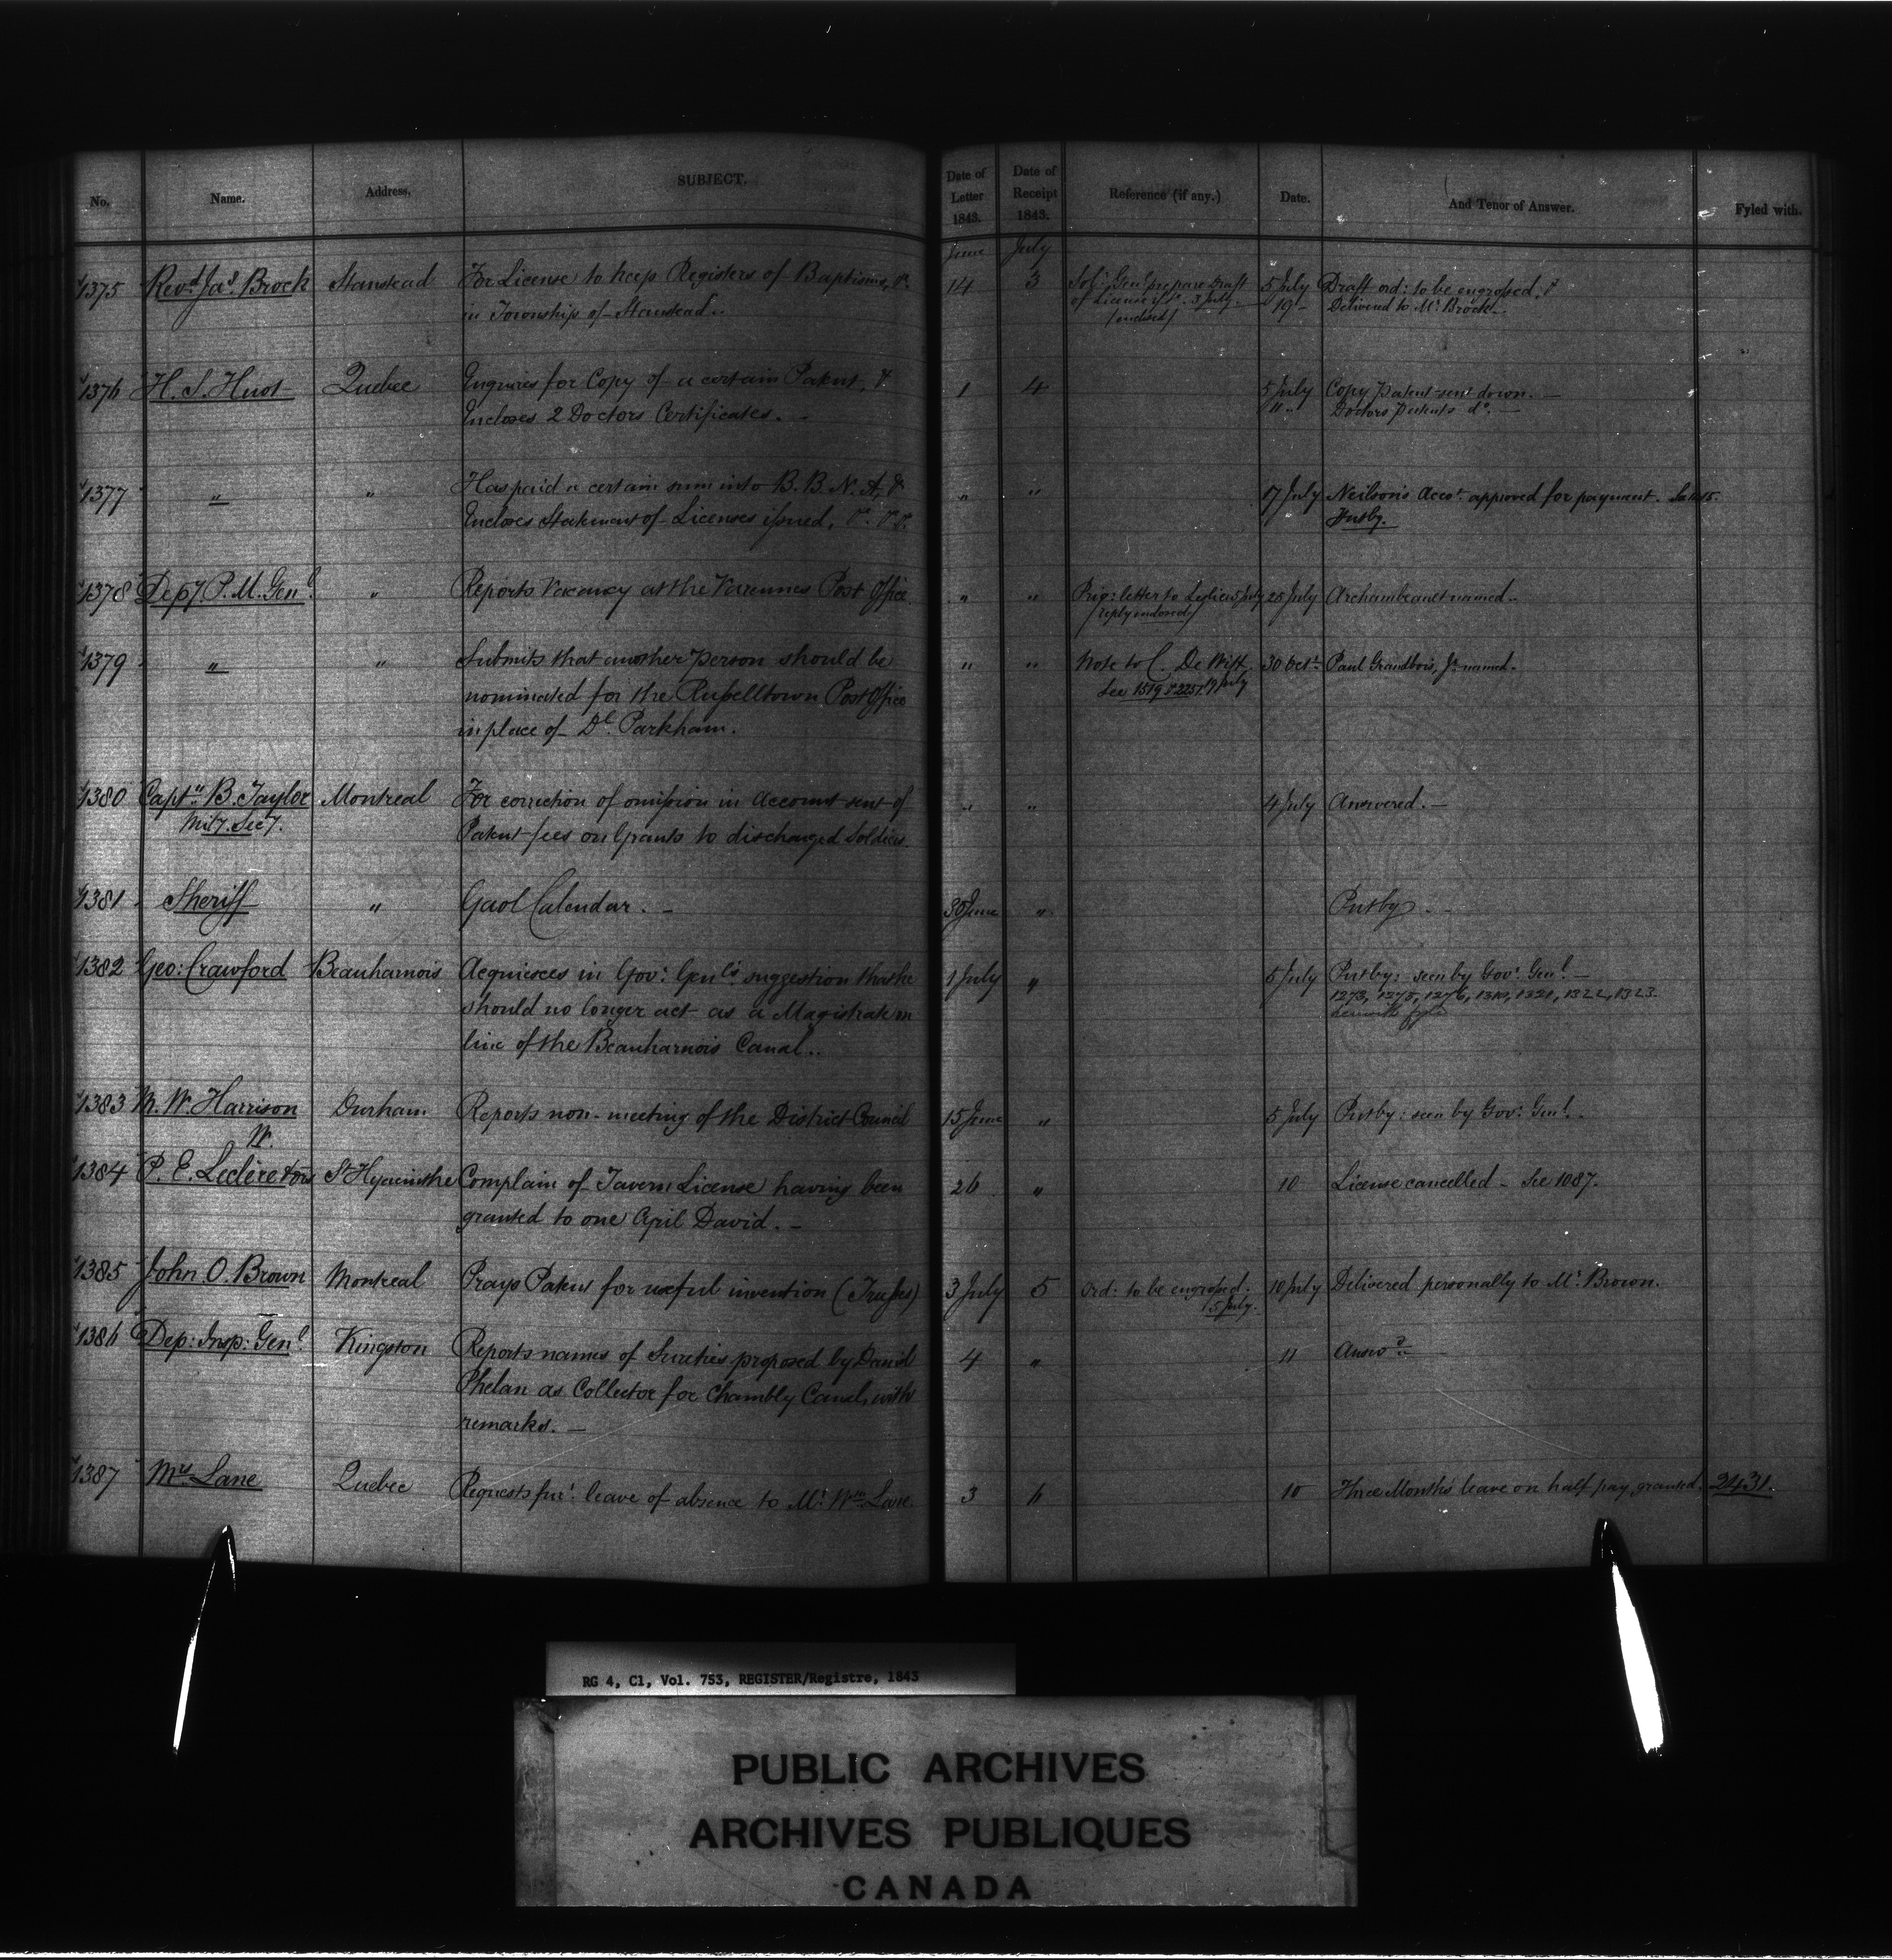 No. Name. Address. SUBJECT. Date of Letter 1843. Date of Receipt 1843. Reference (if any.) Date. And Tenor of Answer. Fyled with.
June July
1375 Revd. Jas. Brock Stanstead For License to keep Registers of Baptisms, &c. 14 3 Solr. Genl. prepare Draft 5 July Draft ord: to be engrossed, &
in Township of Stanstead.. of License &c. 3 July. 19 - Delivered to Mr. Brock.-
/enclosed/
1376 H. S. Huot Quebec Enquires for Copy of a certain Patent, & 1 4 5 July Copy Patent sent down. -
Encloses 2 Doctors Certificates. - " " Doctors Patents do. -
1377 " " Has paid a certain sum into B. B. N. A, & " " 17 July Neilson's Acct. approved for payment.
Encloses Statement of Licenses issued, &c. &c. Putby.
1378 Depy. P. M. Genl. " Reports Vacancy at the Varennes Post Office " " Priv: letter to Leslie 5 July 25 July Archambeault named..
/reply endorsed/
1379 " " Submits that another person should be " " Note to C. De Witt. 30 Oct. Paul Grandbois, Jr. named.
nominated for the Russelltown Post Office See 1519 & 2257. 19 July
in place of Dl. Parkham.
1380 Captn. B. Taylor Montreal For correction of omission in Account sent of " " 4 July Answered. -
Mily. Secy. Patent fees on Grants to discharged Soldiers.
1381 Sheriff " Gaol Calendar. - 30 June " Putby. -
1382 Geo: Crawford Beauharnois Acquiesces in Govr. Genl's. suggestion that he 1 July " 5 July Putby: seen by Govr. Genl. -
should no longer act as a Magistrate on 1273, 1275, 1276, 1310, 1321, 1322, 1323.
line of the Beauharnois Canal.. herewith fyled
1383 M. W. Harrison Durham Reports non-meeting of the District Council 15 June " 5 July Putby: seen by Govr. Genl..
W.
1384 P. E. Leclère & ors St Hyacinthe Complain of Tavern License having been 26 " 10 License cancelled - See 1087.
granted to one April David. -
1385 John O. Brown Montreal Prays Patent for useful invention (Trusses) 3 July 5 Ord: to be engrossed. 10 July Delivered personally to Mr. Brown.
/5 July.
1386 Dep: Insp: Genl. Kingston Reports names of Sureties proposed by Daniel 4 " 11 Answd. -
Phelan as Collector for Chambly Canal, with
remarks. -
1387 Mrs Lane Quebec Requests fur. leave of absence to Mr. Wm. Lane 3 6 10 Three Months leave on half pay, granted. 2431.
RG 4, C1, Vol. 753, REGISTER/Registre, 1843
PUBLIC ARCHIVES
ARCHIVES PUBLIQUES
CANADA